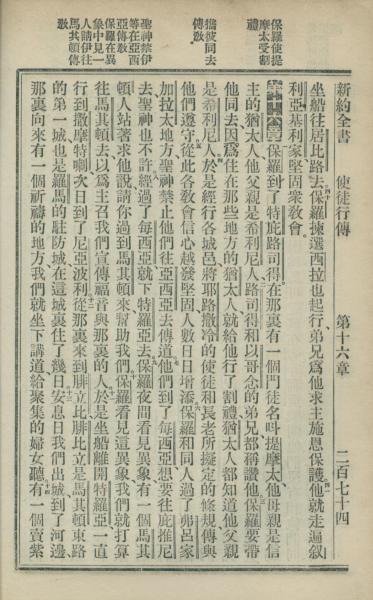 新約全書　使徒行傳　第十六章　二百七十四
保羅使提
摩太受割
禮
攜彼同去
傳教
聖神禁伊
等在亞西
亞傳教
保羅在異
象中見一
人請伊往
馬其頓傳
教
坐船往居比路去保羅揀選西拉也起行弟兄爲他求主施恩保護他就走遍叙
利亞基利家堅固衆教會。
第十六章保羅到了特庇路司得在那裏有一個門徒名呌提摩太他母親是信
主的猶太人他父親是希利尼人路司得和以哥念的弟兄都稱讚他保羅要帶
他同去因爲住在那些地方的猶太人就給他行了割禮猶太人都知道他父親
是希利尼人於是經行各城邑將耶路撒冷的使徒和長老所擬定的條規傳與
他們遵守從此各教會信心越發堅固人數日日增添保羅和同人過了弗呂家
加拉太地方聖神禁止他們往亞西亞去傳道他們到了每西亞想要往庇推尼
去聖神也不許經過了每西亞就下特羅亞去保羅夜間看見異象有一個馬其
頓人站著求他說請你過到馬其頓來幫助我們保羅看見這異象我們就打算
往馬其頓去以爲主召我們宣傳福音與那裏的人於是坐船離開特羅亞一直
行到撒摩特喇次日到了尼亞波利從那裏來到腓立比腓立比是馬其頓東路
的第一城也是羅馬的駐防城在這城裏住了幾日安息日我們出城到了河邊
那裏向來有一個祈禱的地方我們就坐下講道給聚集的婦女聽有一個賣紫